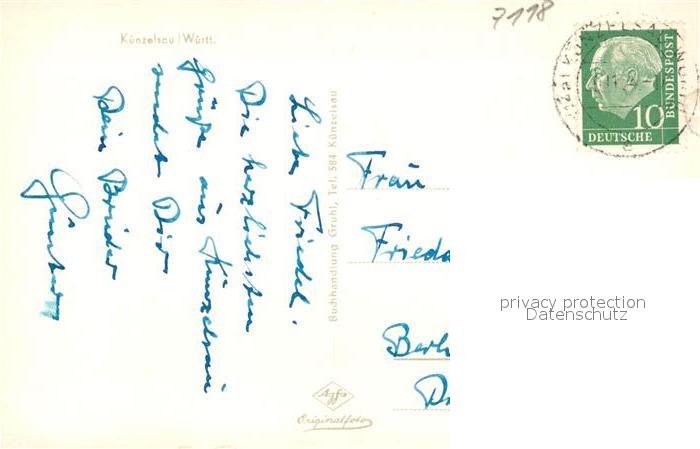 7118
Künzelsau / Württ.
Liebe Friedel.
Die herzlichsten
Grüße aus Künzelsau
sendet Dir
Dein Bruder
Günter
Buchhandlung Gruhl, Tel. 584 Künzelsau
Agfa
Originalfoto
Frau
Frieda
Berl
10
DEUTSCHE
BUNDESPOST
privacy protection
Datenschutz